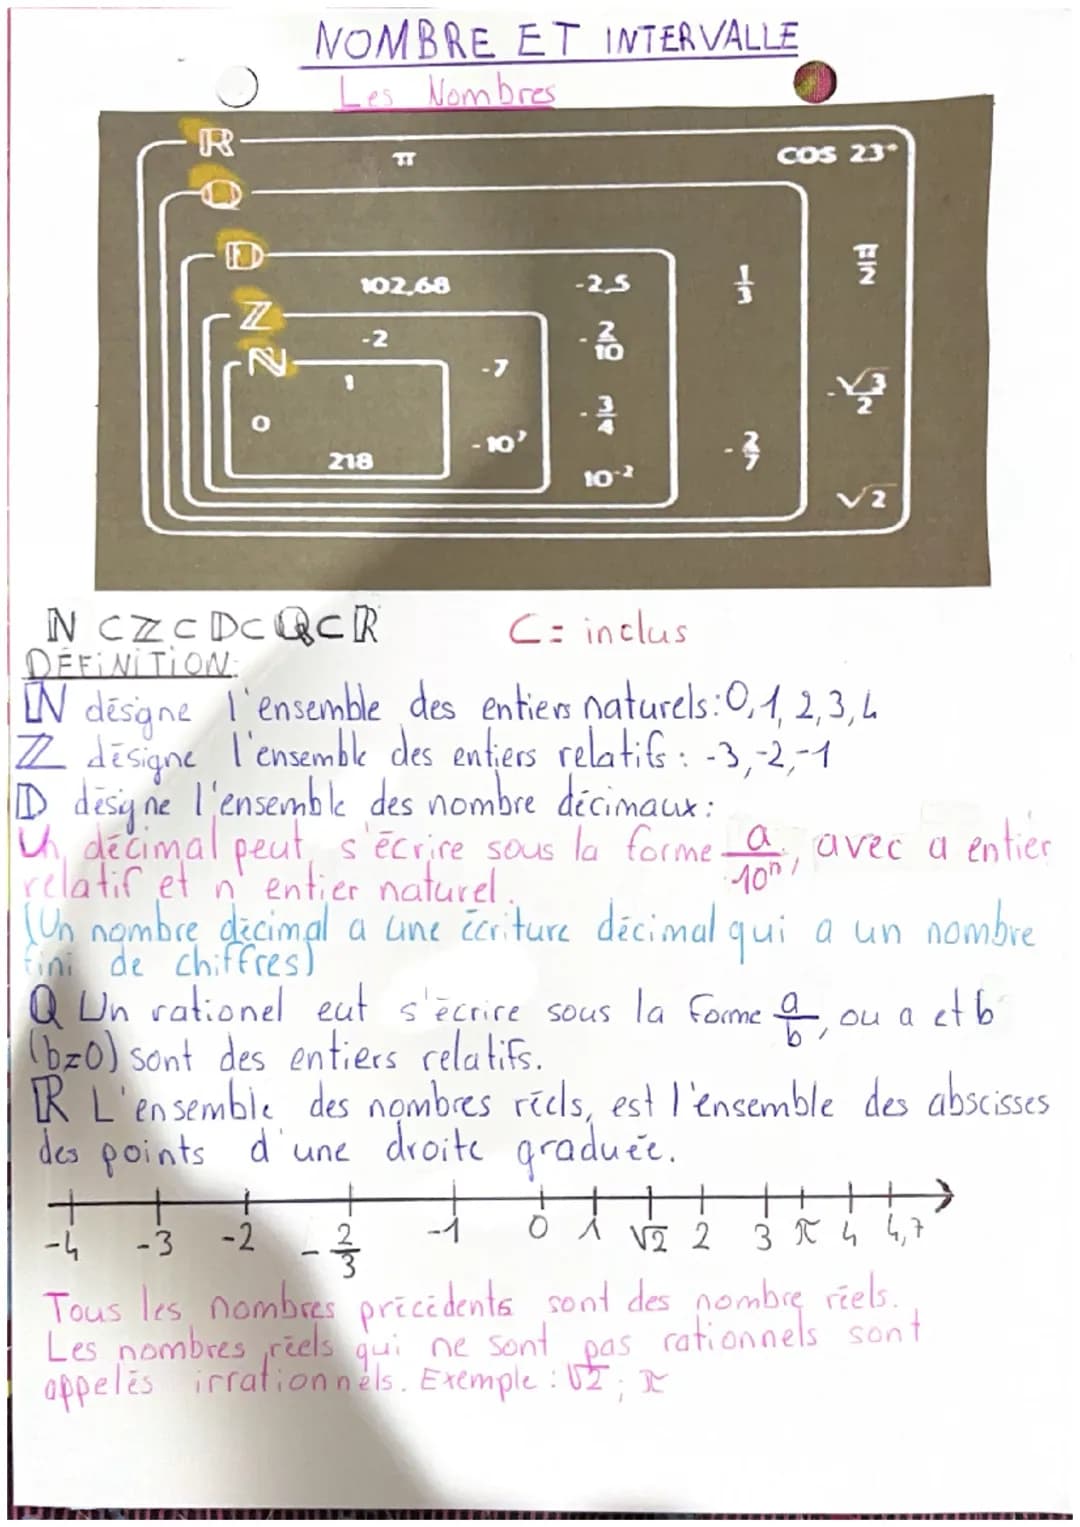 NOMBRE ET INTERVALLE
Les Nombres
ℝ π COS 23°
ℚ
𝔻 π/2
102,68 -2,5 1/3
ℤ -2 -2/10
ℕ 1 -7 -3/4 -√3/2
0 -10⁷ -2/7
218 10⁻² √2
ℕ ⊂ ℤ ⊂ 𝔻 ⊂ ℚ ⊂ ℝ ⊂ = inclus
DÉFINITION:
ℕ désigne l'ensemble des entiers naturels: 0, 1, 2, 3, 4
ℤ désigne l'ensemble des entiers relatifs : -3, -2, -1
𝔻 désigne l'ensemble des nombre décimaux :
Un décimal peut s'écrire sous la forme a/10ⁿ, avec a entier
relatif et n entier naturel.
(Un nombre décimal a une écriture décimal qui a un nombre
fini de chiffres)
ℚ Un rationel eut s'écrire sous la forme a/b, ou a et b
(b=0) sont des entiers relatifs.
ℝ L'ensemble des nombres réels, est l'ensemble des abscisses
des points d'une droite graduée.
-4 -3 -2 -2/3 -1 0 1 √2 2 3 π 4 4,7
Tous les nombres précédents sont des nombre réels.
Les nombres réels qui ne sont pas rationnels sont
appelés irrationnels. Exemple : √2 ; π